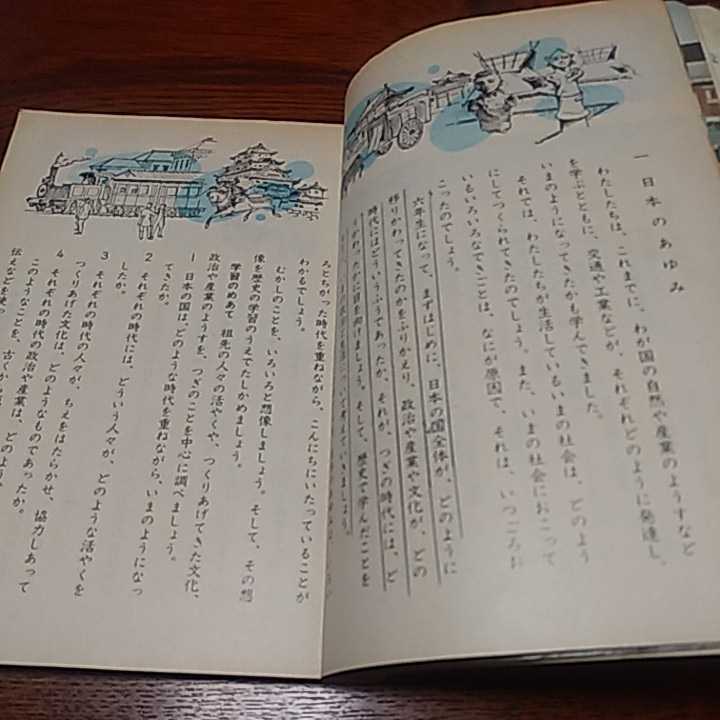 一 日本のあゆみ
わたしたちは、これまでに、わが国の自然や産業のようすなど
を学ぶとともに、交通や工業などが、それぞれどのように発達し、
いまのようになってきたかも学んできました。
それでは、わたしたちが生活しているいまの社会は、どのよう
にしてつくられてきたのでしょう。また、いまの社会におこって
いるいろいろなできごとは、なにが原因で、それは、いつごろお
こったのでしょう。
六年生になって、まずはじめに、日本の国全体が、どのように
移りかわってきたのかをふりかえり、政治や産業や文化が、どの
時代にはどういうふうであったか、それが、つぎの時代には、ど
うかわったかに目を向けましょう。そして、歴史で学んだことを
ろとちがった時代を重ねながら、こんにちにいたっていることが
わかるでしょう。
むかしのことを、いろいろと想像しましょう。そして、その想
像を歴史の学習のうえでたしかめましょう。
学習のめあて 祖先の人々の活やくや、つくりあげてきた文化、
政治や産業のようすを、つぎのことを中心に調べましょう。
1 日本の国は、どのような時代を重ねながら、いまのようになっ
てきたか。
2 それぞれの時代には、どういう人々が、どのような活やくを
したか。
3 それぞれの時代の人々が、ちえをはたらかせ、協力しあって
つくりあげた文化は、どのようなものであったか。
4 それぞれの時代の政治や産業は、どのよう
このようなことを、古くか
伝えなどを使っ